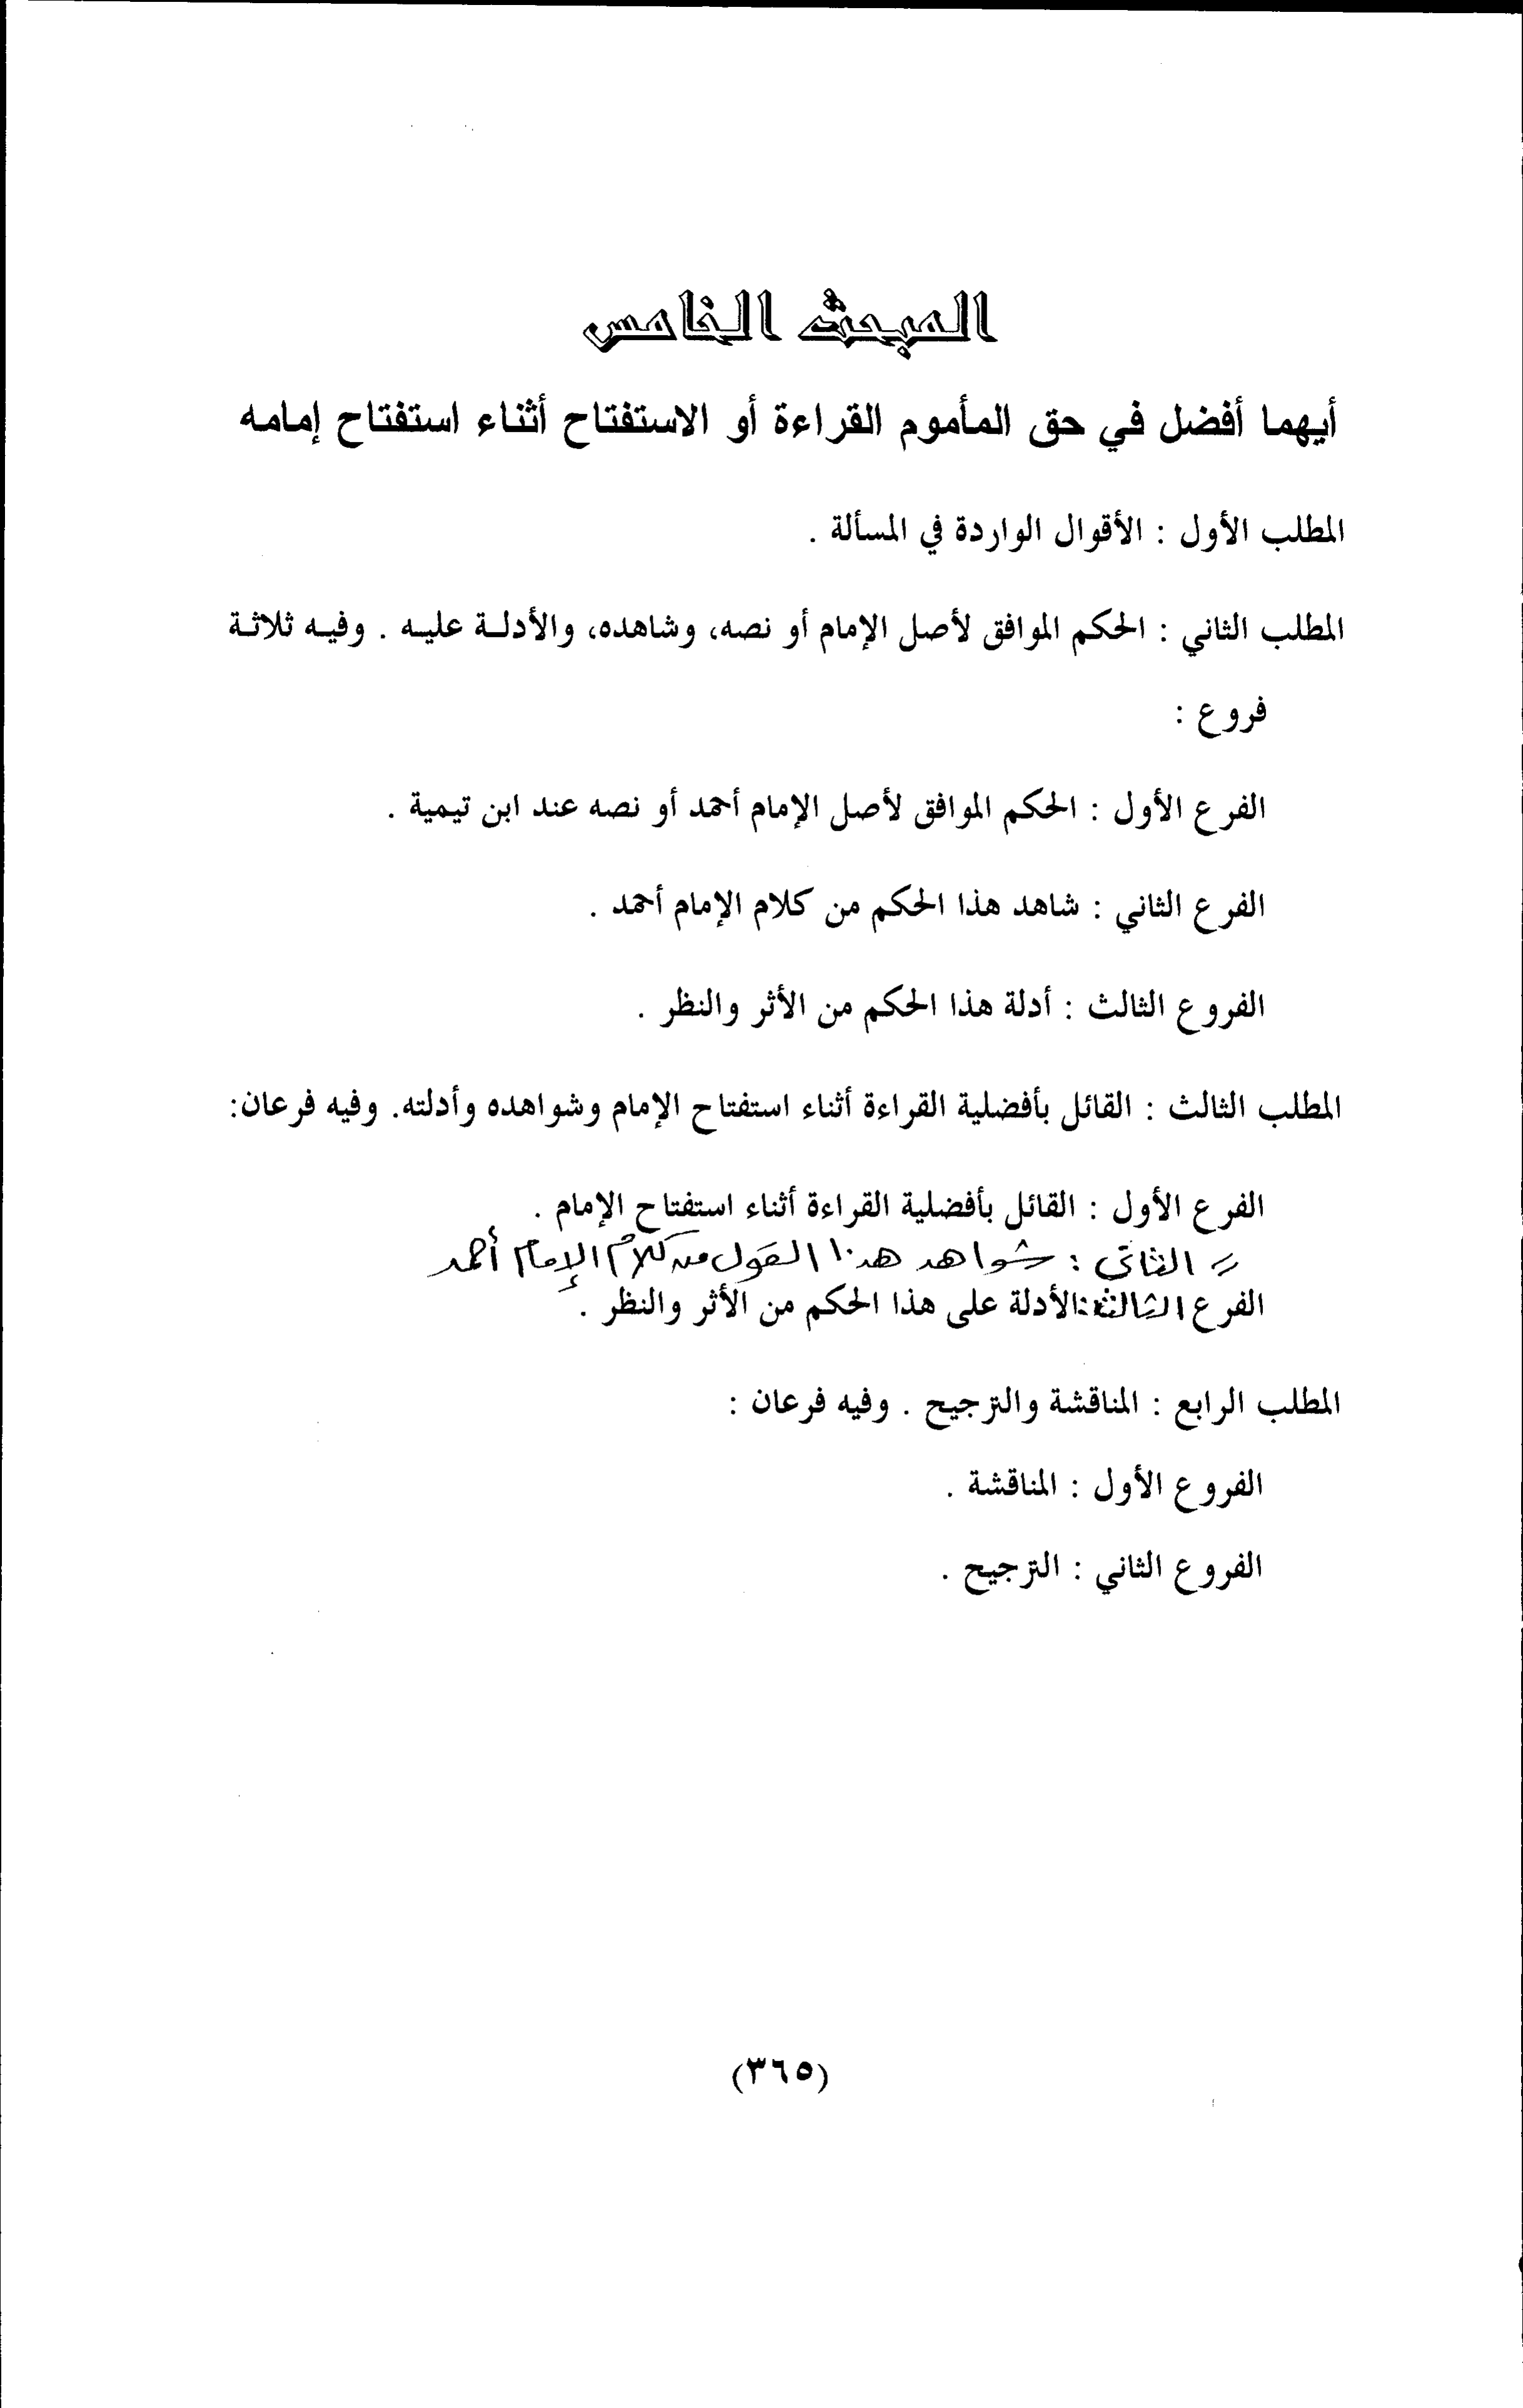 المبحث الخامس
أيهما أفضل في حق المأموم القراءة أو الاستفتاح أثناء استفتاح إمامه
المطلب الأول : الأقوال الواردة في المسألة .
المطلب الثاني : الحكم الموافق لأصل الإمام أو نصه، وشاهده، والأدلة عليه . وفيه ثلاثة
فروع :
الفرع الأول : الحكم الموافق لأصل الإمام أحمد أو نصه عند ابن تيمية .
الفرع الثاني : شاهد هذا الحكم من كلام الإمام أحمد .
الفروع الثالث : أدلة هذا الحكم من الأثر والنظر .
المطلب الثالث : القائل بأفضلية القراءة أثناء استفتاح الإمام وشواهده وأدلته. وفيه فرعان:
الفرع الأول : القائل بأفضلية القراءة أثناء استفتاح الإمام .
= الثاني : شواهد هذا القول من كلام الإمام أحمد
الفرع الثالث: الأدلة على هذا الحكم من الأثر والنظر .
المطلب الرابع : المناقشة والترجيح . وفيه فرعان :
الفروع الأول : المناقشة .
الفروع الثاني : الترجيح .
(٣٦٥)